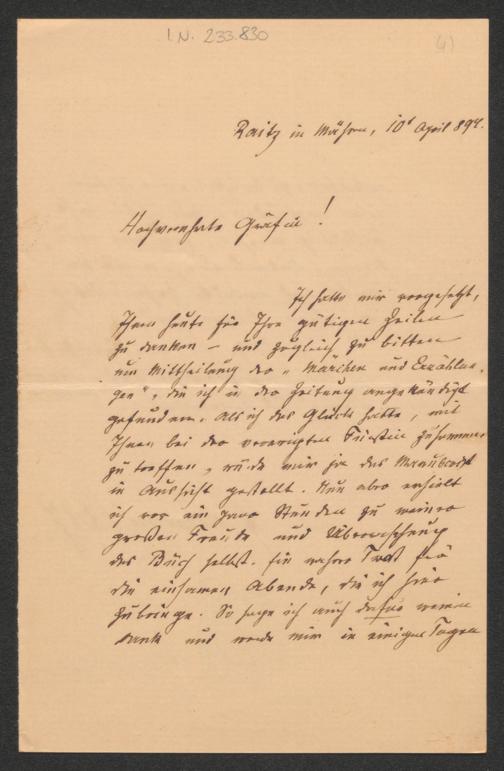 I.N. 233.830
4)
Raitz in Mähren, 10t April 892.
Hochverehrte Gräfin!
Ich hatte mir vorgesetzt,
Ihnen heute für Ihre gütigen Zeilen
zu danken – und zugleich zu bitten
um Mittheilung der „Märchen und Erzählun-
gen", die ich in der Zeitung angekündigt
gefunden. Als ich das Glück hatte, mit
Ihnen bei der verewigten Fürstin zusammen
zu treffen, wurde mir ja das Manuscript
in Aussicht gestellt. Nun aber erhielt
ich vor ein paar Stunden zu meiner
großen Freude und Überraschung
das Buch selbst. Ein wahrer Trost für
die einsamen Abende, die ich hier
zubringe. So sage ich auch dafür meinen
Dank und werde mir in einigen Tagen